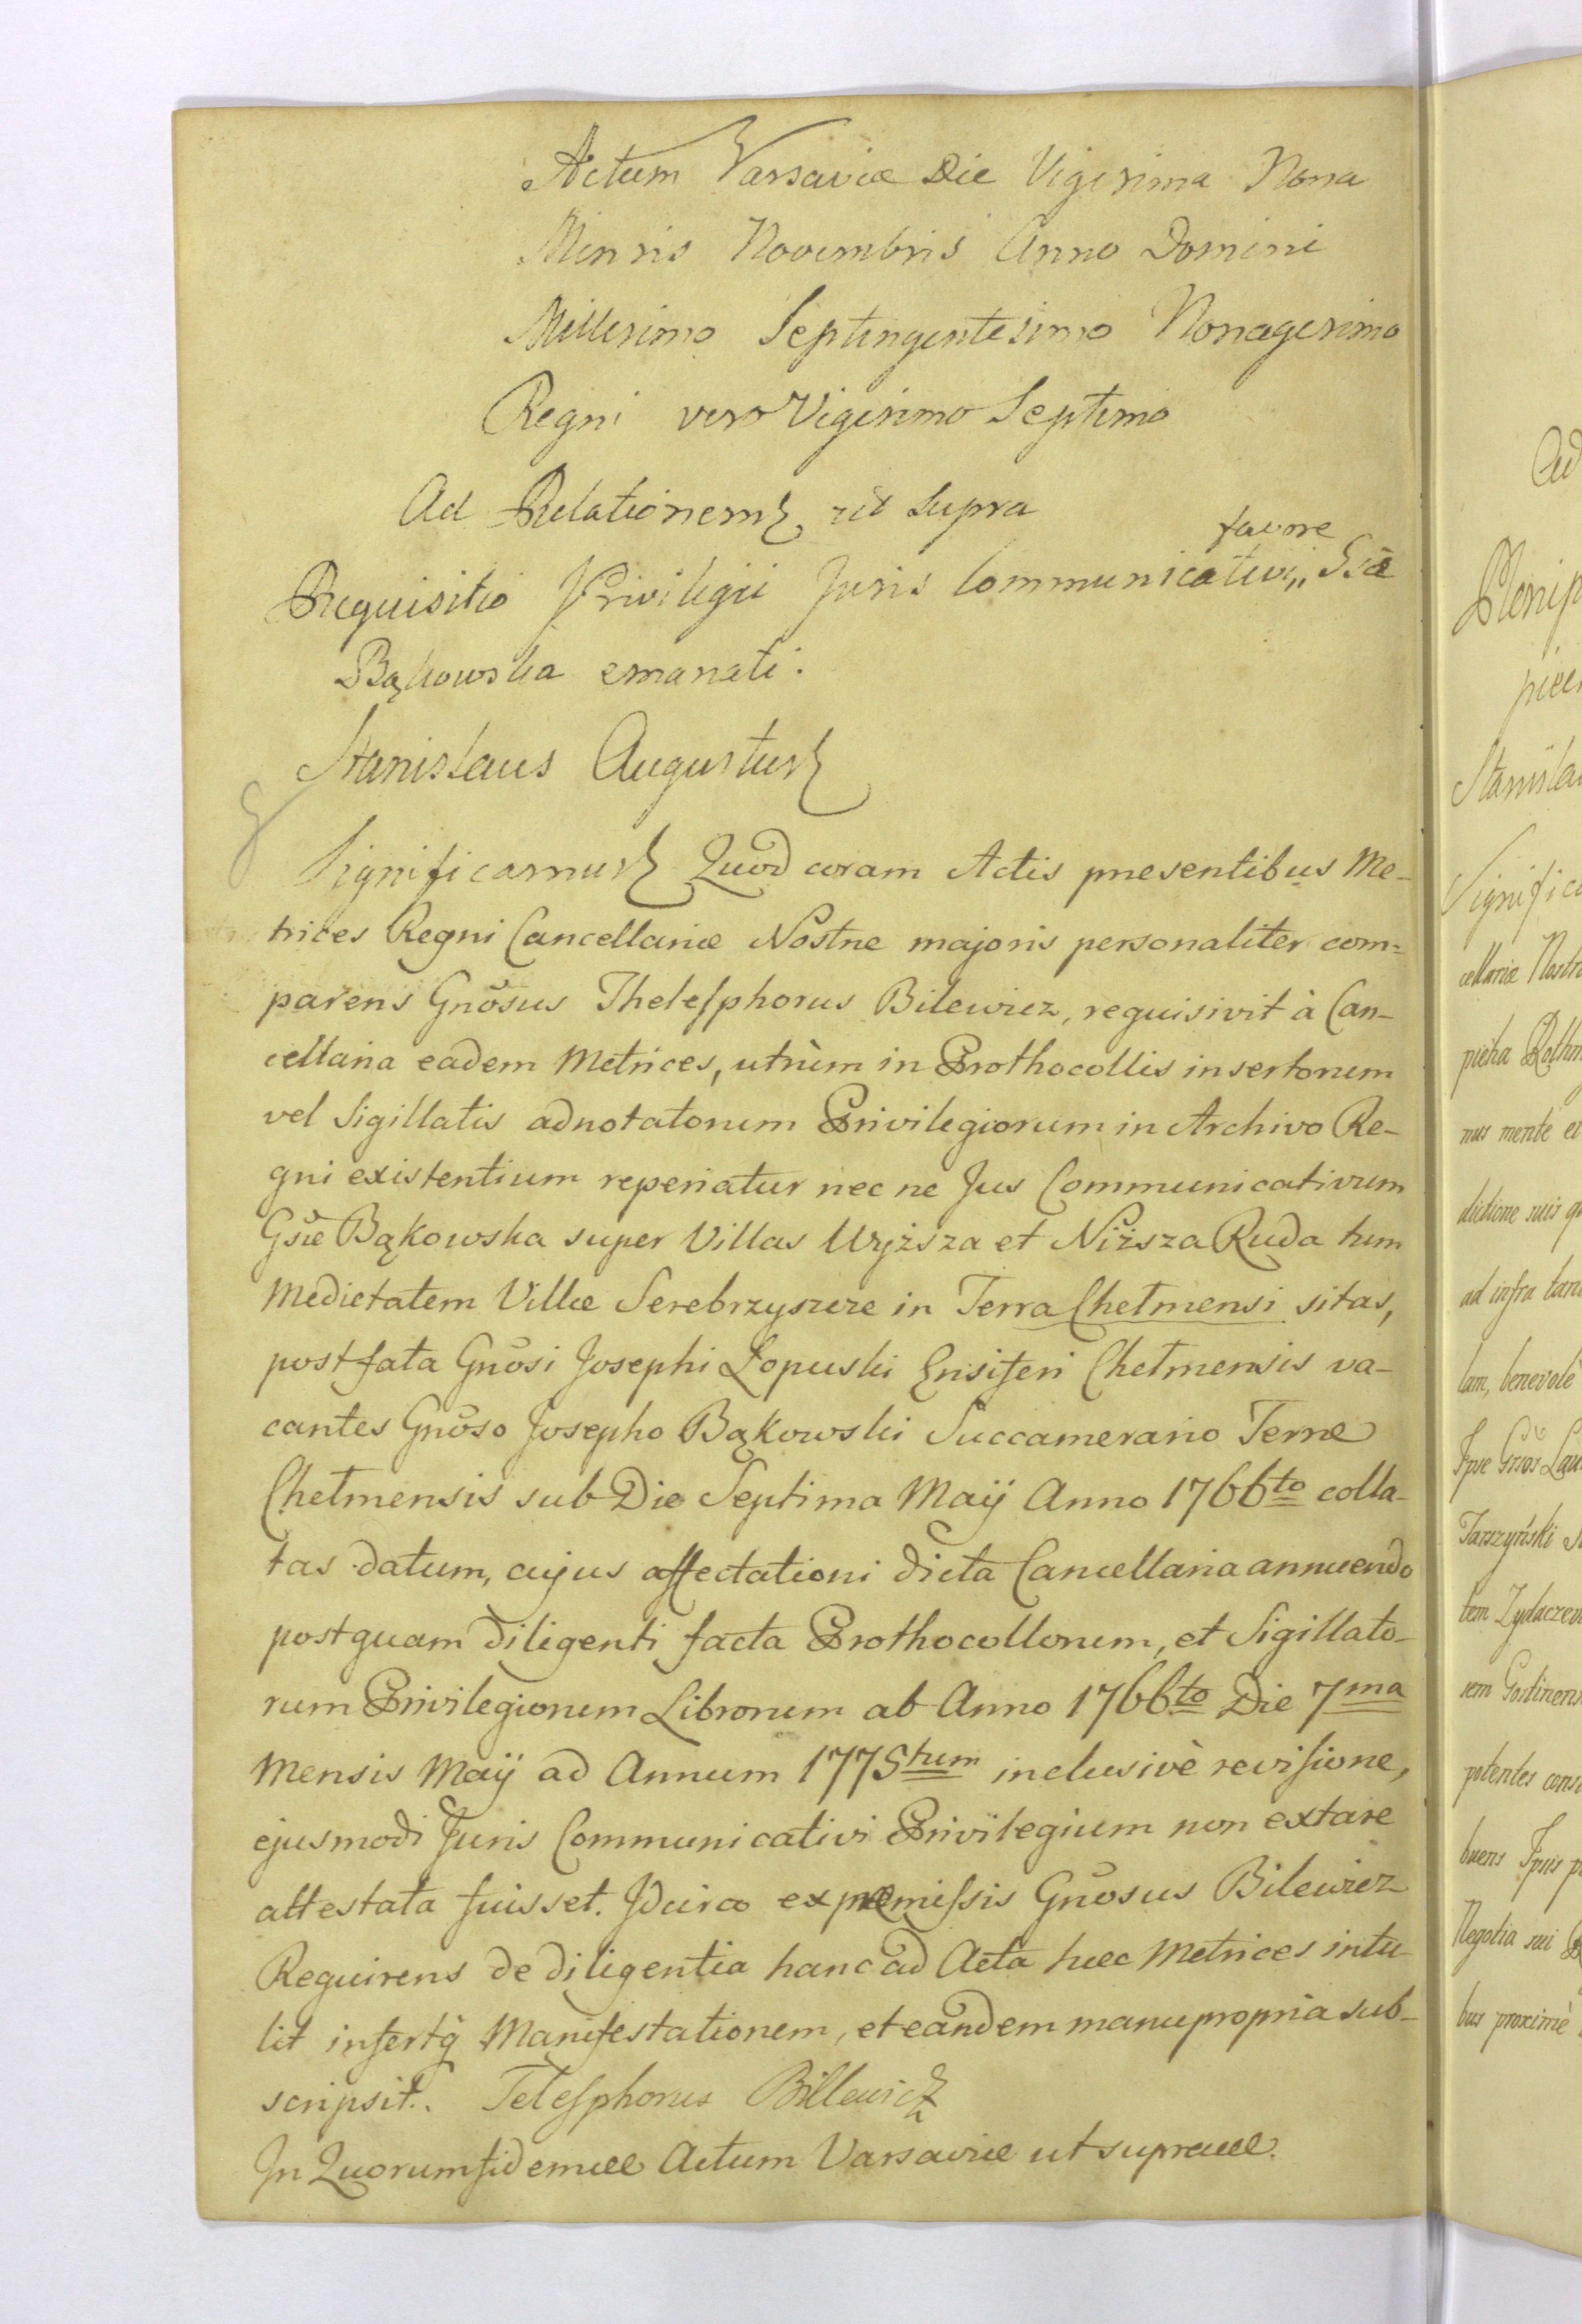 Actum Varsaviæ Die Vigesima Nona
Mensis Novembris Anno Domini
Millesimo Septingentesimo Nonagesimo
Regni vero Vigesimo Septimo
Ad Relationem ut supra
Requisitio Privilegii Juris Communicativi,, favore Gsæ
Bąkowska emanati.
Stanislaus Augustus
Significamus Quod coram Actis præsentibus Me-
trices Regni Cancellariæ Nostræ majoris personaliter com=
parens Gnosus Thelesphorus Bilewicz, requisivit à Can-
cellaria eadem Metrices, utrùm in Prothocollis insertorum
vel Sigillatis adnotatorum Privilegiorum in Archivo Re-
gni existentium reperiatur nec ne Jus Communicativum
Gsæ Bąkowska super Villas Wyższa et Niższa Ruda tum
Medietatem Villæ Serebrzyszcze in Terra Chełmensi sitas,
post fata Gnosi Josephi Łopuski Ensiferi Chełmensis va-
cantes Gnoso Josepho Bąkowski Succamerario Terræ
Chełmensis sub Die Septima Maij Anno 1766to colla-
tas datum, cujus affectationi dicta Cancellaria annuendo
postquam diligenti facta Prothocollorum, et Sigillato-
rum Privilegiorum Librorum ab Anno 1766to Die 7ma
Mensis Maij ad Annum 1775tum inclusivè revisione,
ejusmodi Juris Communicativi Privilegium non extare
attestata fuisset. Idcirco ex præmissis Gnosus Bilewicz
Requirens de diligentia hanc ad Acta hæc Metrices intu-
lit insertq̃ Manifestationem, et eandem manu propria sub-
scripsit. Telesphorus Billewicz
In Quorum fidem &c Actum Varsaviæ ut supra &c.
Ad
Plenip
piec
Stanisla
Significa
cellariæ Nostr
pieha Rothm
nus mente et
dictione suis q
ad infra
lam, benevolè
Ipse Gnos
Tarczyński
tem Zydaczew
sem Gostinens
potentes cons
buens Ipsis p
Negotia sui
bus proximè